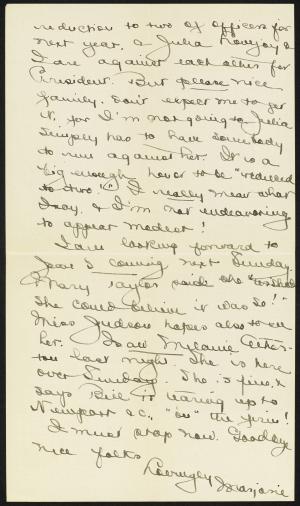 reduction to two of officers for
next year, & Julia Lovejoy &
I are against each other for
President. But please nice
family, don't expect me to get
it, for I'm not going to. Julia
simply has to have somebody
to run against her. It is a
big enough honor to be "reduced
to two"! I really mean what
I say, & I'm not endeavoring
to appear modest!
I am looking forward to
I coming next Sunday.
Mary Taylor said she "wished
she could believe it was so!"
Miss Judson hopes also to see
her. Saw Melanie
last night. She is here
over Sunday. She is fine &
says Bill is tearing up to
Newport &c., "on" the firm!
I must stop now. Goodbye
nice folks
Lovingly Marjorie